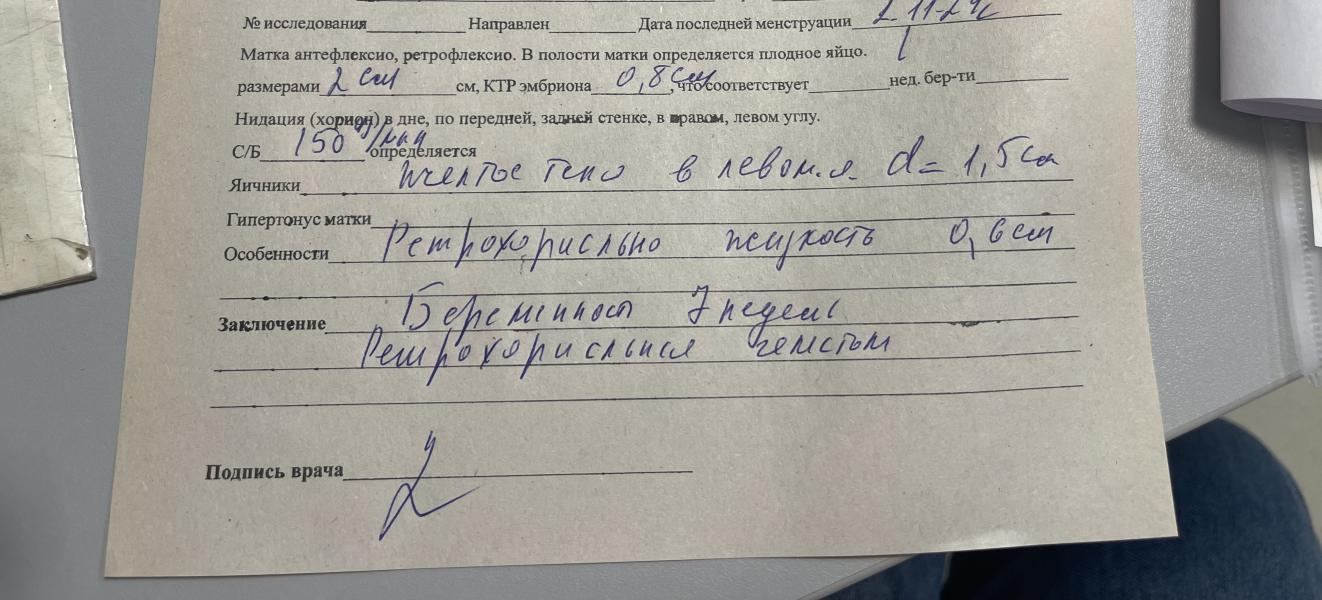 № исследования Направлен Дата последней менструации 2.11.24
Матка антефлексио, ретрофлексио. В полости матки определяется плодное яйцо. 1
размерами 2 см см, КТР эмбриона 0,8 см, что соответствует нед. бер-ти
Нидация (хорион) в дне, по передней, задней стенке, в правом, левом углу.
С/Б 150 уд/мин определяется
Яичники желтое тело в левом.я. d= 1,5 см
Гипертонус матки
Особенности Ретрохориально жидкость 0,6 см
Заключение Беременность 7 недель
Ретрохориальная гематом
Подпись врача